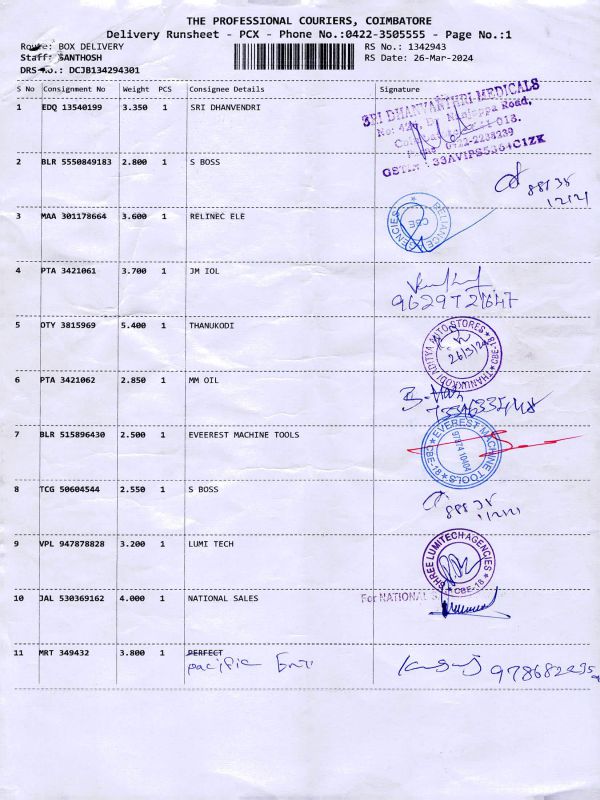 THE PROFESSIONAL COURIERS, COIMBATORE
Delivery Runsheet - PCX - Phone No.:0422-3505555 - Page No.:1
Route: BOX DELIVERY
RS No.: 1342943
Staff: SANTHOSH
RS Date: 26-Mar-2024
DRS No.: DCJB134294301
S No Consignment No Weight PCS Consignee Details Signature
1 EDQ 13540199 3.350 1 SRI DHANVENDRI
SRI DHANVANTHRI MEDICALS
GSTIN : 33AVIPS5364C1ZK
2 BLR 5550849183 2.800 1 S BOSS
3 MAA 301178664 3.600 1 RELINEC ELE
RELIANCE AGENCIES
CBE
4 PTA 3421061 3.700 1 JM IOL
5 OTY 3815969 5.400 1 THANUKODI
THANUKKODI ADITYA AUTO STORES CBE-18
26/3/24
6 PTA 3421062 2.850 1 MM OIL
7 BLR 515896430 2.500 1 EVEEREST MACHINE TOOLS
EVEREST MACHINE TOOLS CBE-18
97874 10404
8 TCG 50604544 2.550 1 S BOSS
9 VPL 947878828 3.200 1 LUMI TECH
SHREE LUMITECH AGENCIES
CBE-18
10 JAL 530369162 4.000 1 NATIONAL SALES
For NATIONAL
11 MRT 349432 3.800 1 PERFECT
pacific Ent